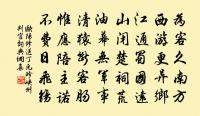 為客久南方
西游更異鄉
江通蜀國遠
山閉楚祠荒
油幕無軍事
清猿斷客腸
惟應陪主諾
不費日飛觴
歐陽修送丁元珍峽州
判官詞典網集